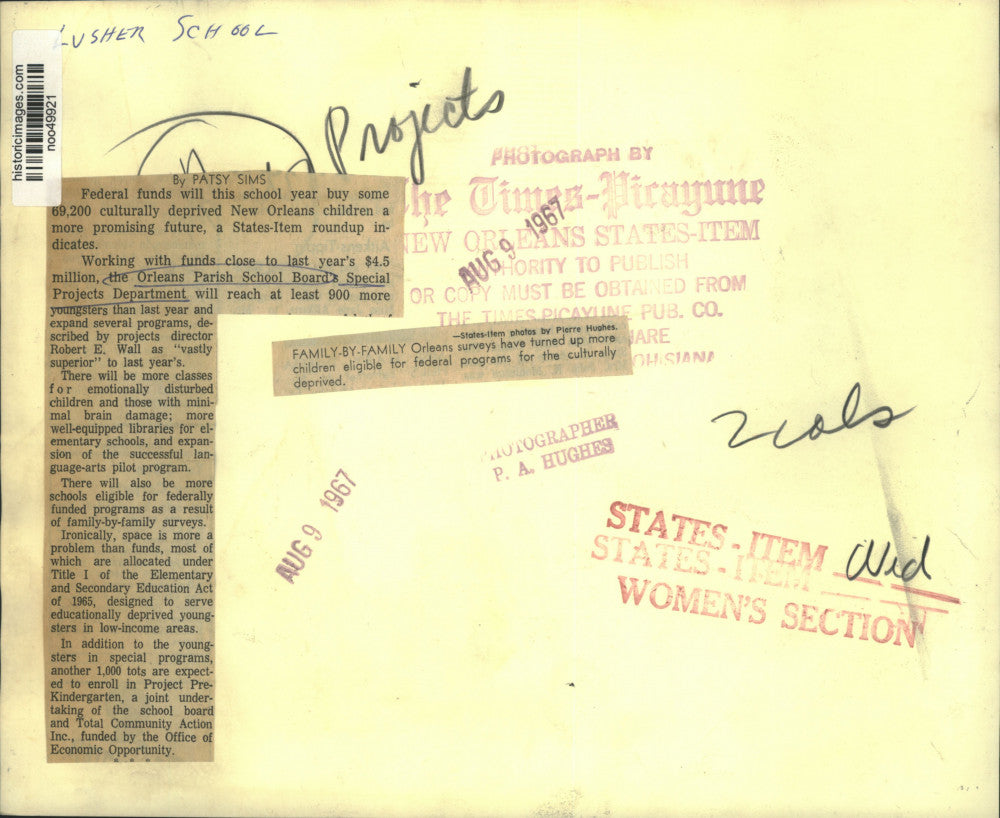 LUSHER SCHOOL
historicimages.com
noo49921
Projects
By PATSY SIMS
Federal funds will this school year buy some
69,200 culturally deprived New Orleans children a
more promising future, a States-Item roundup in-
dicates.
Working with funds close to last year's $4.5
million, the Orleans Parish School Board's Special
Projects Department will reach at least 900 more
youngsters than last year and
expand several programs, de-
scribed by projects director
Robert E. Wall as "vastly
superior" to last year's.
There will be more classes
for emotionally disturbed
children and those with mini-
mal brain damage; more
well-equipped libraries for el-
ementary schools, and expan-
sion of the successful lan-
guage-arts pilot program.
There will also be more
schools eligible for federally
funded programs as a result
of family-by-family surveys.
Ironically, space is more a
problem than funds, most of
which are allocated under
Title I of the Elementary
and Secondary Education Act
of 1965, designed to serve
educationally deprived young-
sters in low-income areas.
In addition to the young-
sters in special programs,
another 1,000 tots are expect-
ed to enroll in Project Pre-
Kindergarten, a joint under-
taking of the school board
and Total Community Action
Inc., funded by the Office of
Economic Opportunity.
PHOTOGRAPH BY
The Times-Picayune
NEW ORLEANS STATES-ITEM
AUG 9 1967
AUTHORITY TO PUBLISH
OR COPY MUST BE OBTAINED FROM
THE TIMES-PICAYUNE PUB. CO.
—States-Item photos by Pierre Hughes.
FAMILY-BY-FAMILY Orleans surveys have turned up more
children eligible for federal programs for the culturally
deprived.
2 cols
PHOTOGRAPHER
P. A. HUGHES
AUG 9 1967
STATES-ITEM
STATES-ITEM
Wed
WOMEN'S SECTION